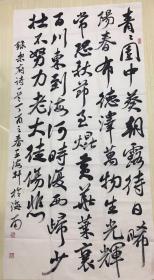 青々園中葵朝露待日晞
陽春布德澤萬物生光輝
常恐秋節至焜黄華葉衰
百川東到海何時復西歸少
壮不努力老大徒傷悲
錄樂府詩一首丁酉之春王海於海南